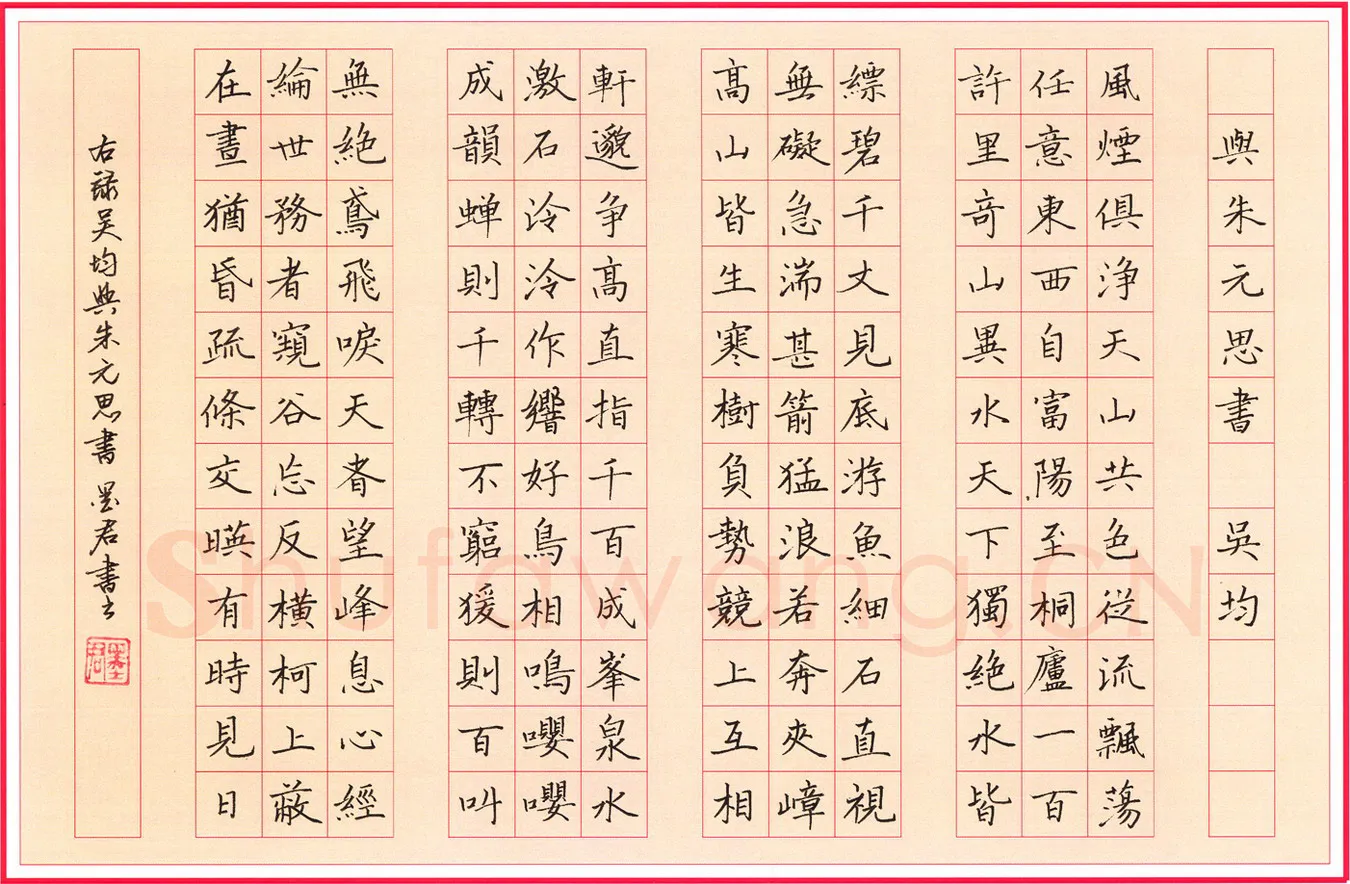 與朱元思書 吳均
風煙俱淨天山共色從流飄蕩
任意東西自富陽至桐廬一百
許里奇山異水天下獨絕水皆
縹碧千丈見底游魚細石直視
無礙急湍甚箭猛浪若奔夾嶂
高山皆生寒樹負勢競上互相
軒邈争高直指千百成峯泉水
激石泠泠作響好鳥相鳴嚶嚶
成韻蝉則千轉不窮猨則百叫
無絕鳶飛唳天者望峰息心經
綸世務者窺谷忘反橫柯上蔽
在晝猶昏疏條交暎有時見日
右録吴均與朱元思書 墨君書
Shufawang.CN